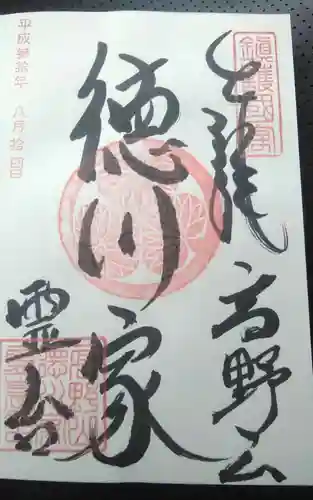 鎮護國家
奉拝 高野山
徳川家
霊台
平成参拾年 八月拾四日